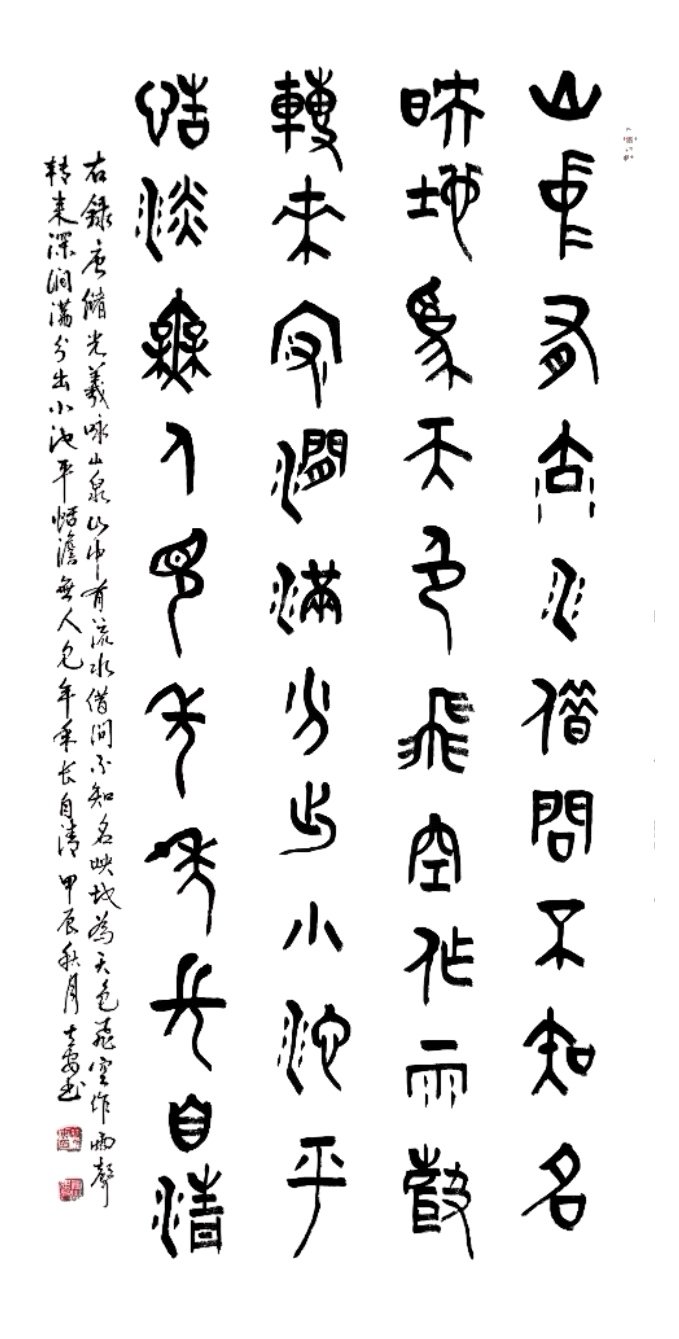 山中有流水借問不知名
映地為天色飛空作雨聲
轉來深澗滿分出小池平
恬淡無人見年年長自清
右録唐儲光羲咏山泉山中有流水借问不知名映地为天色飛空作雨聲
转来深涧满分出小池平恬澹無人見年年长自清甲辰秋月书